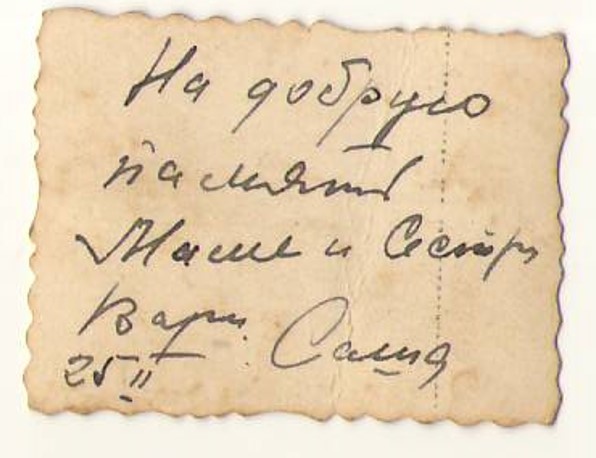 На добрую
память
Маше и Сестре
Вари. Саша
25 II